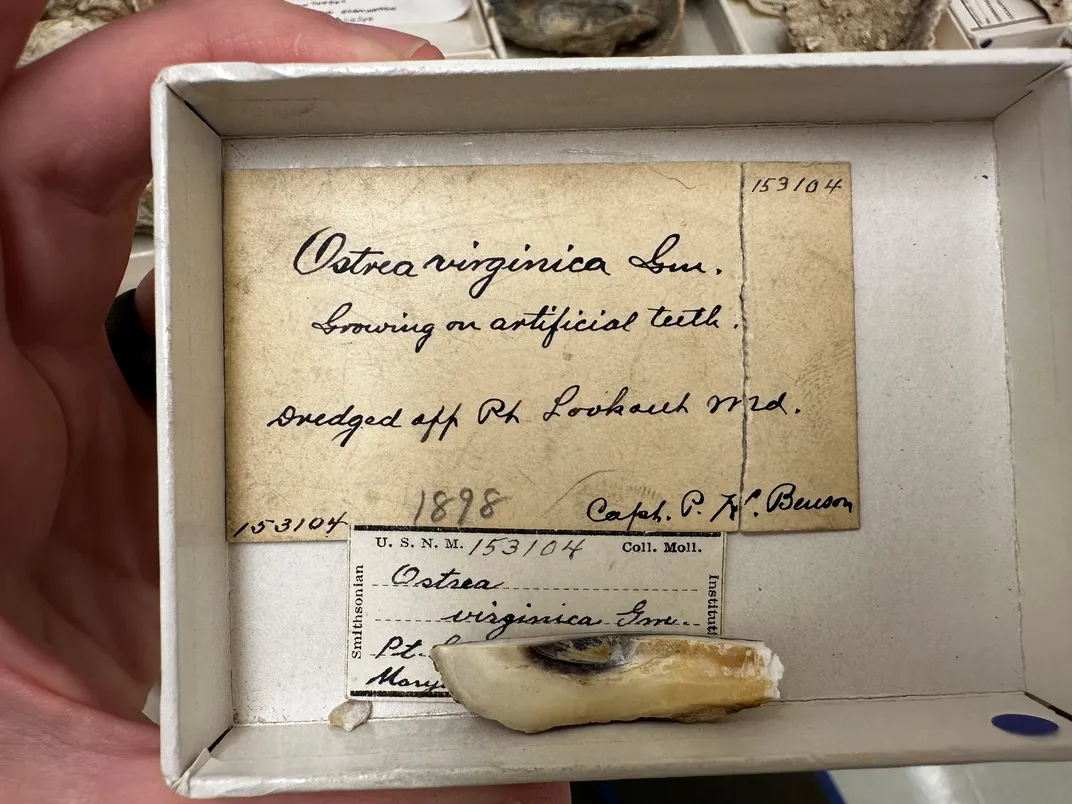 153104
Ostrea virginica Gm.
Growing on artificial teeth.
Dredged off Pt Lookout Md.
1898
Capt. P. Benson
153104
U. S. N. M. 153104 Coll. Moll.
Smithsonian
Ostrea
virginica Gm.
Pt.
Mary
Instituti